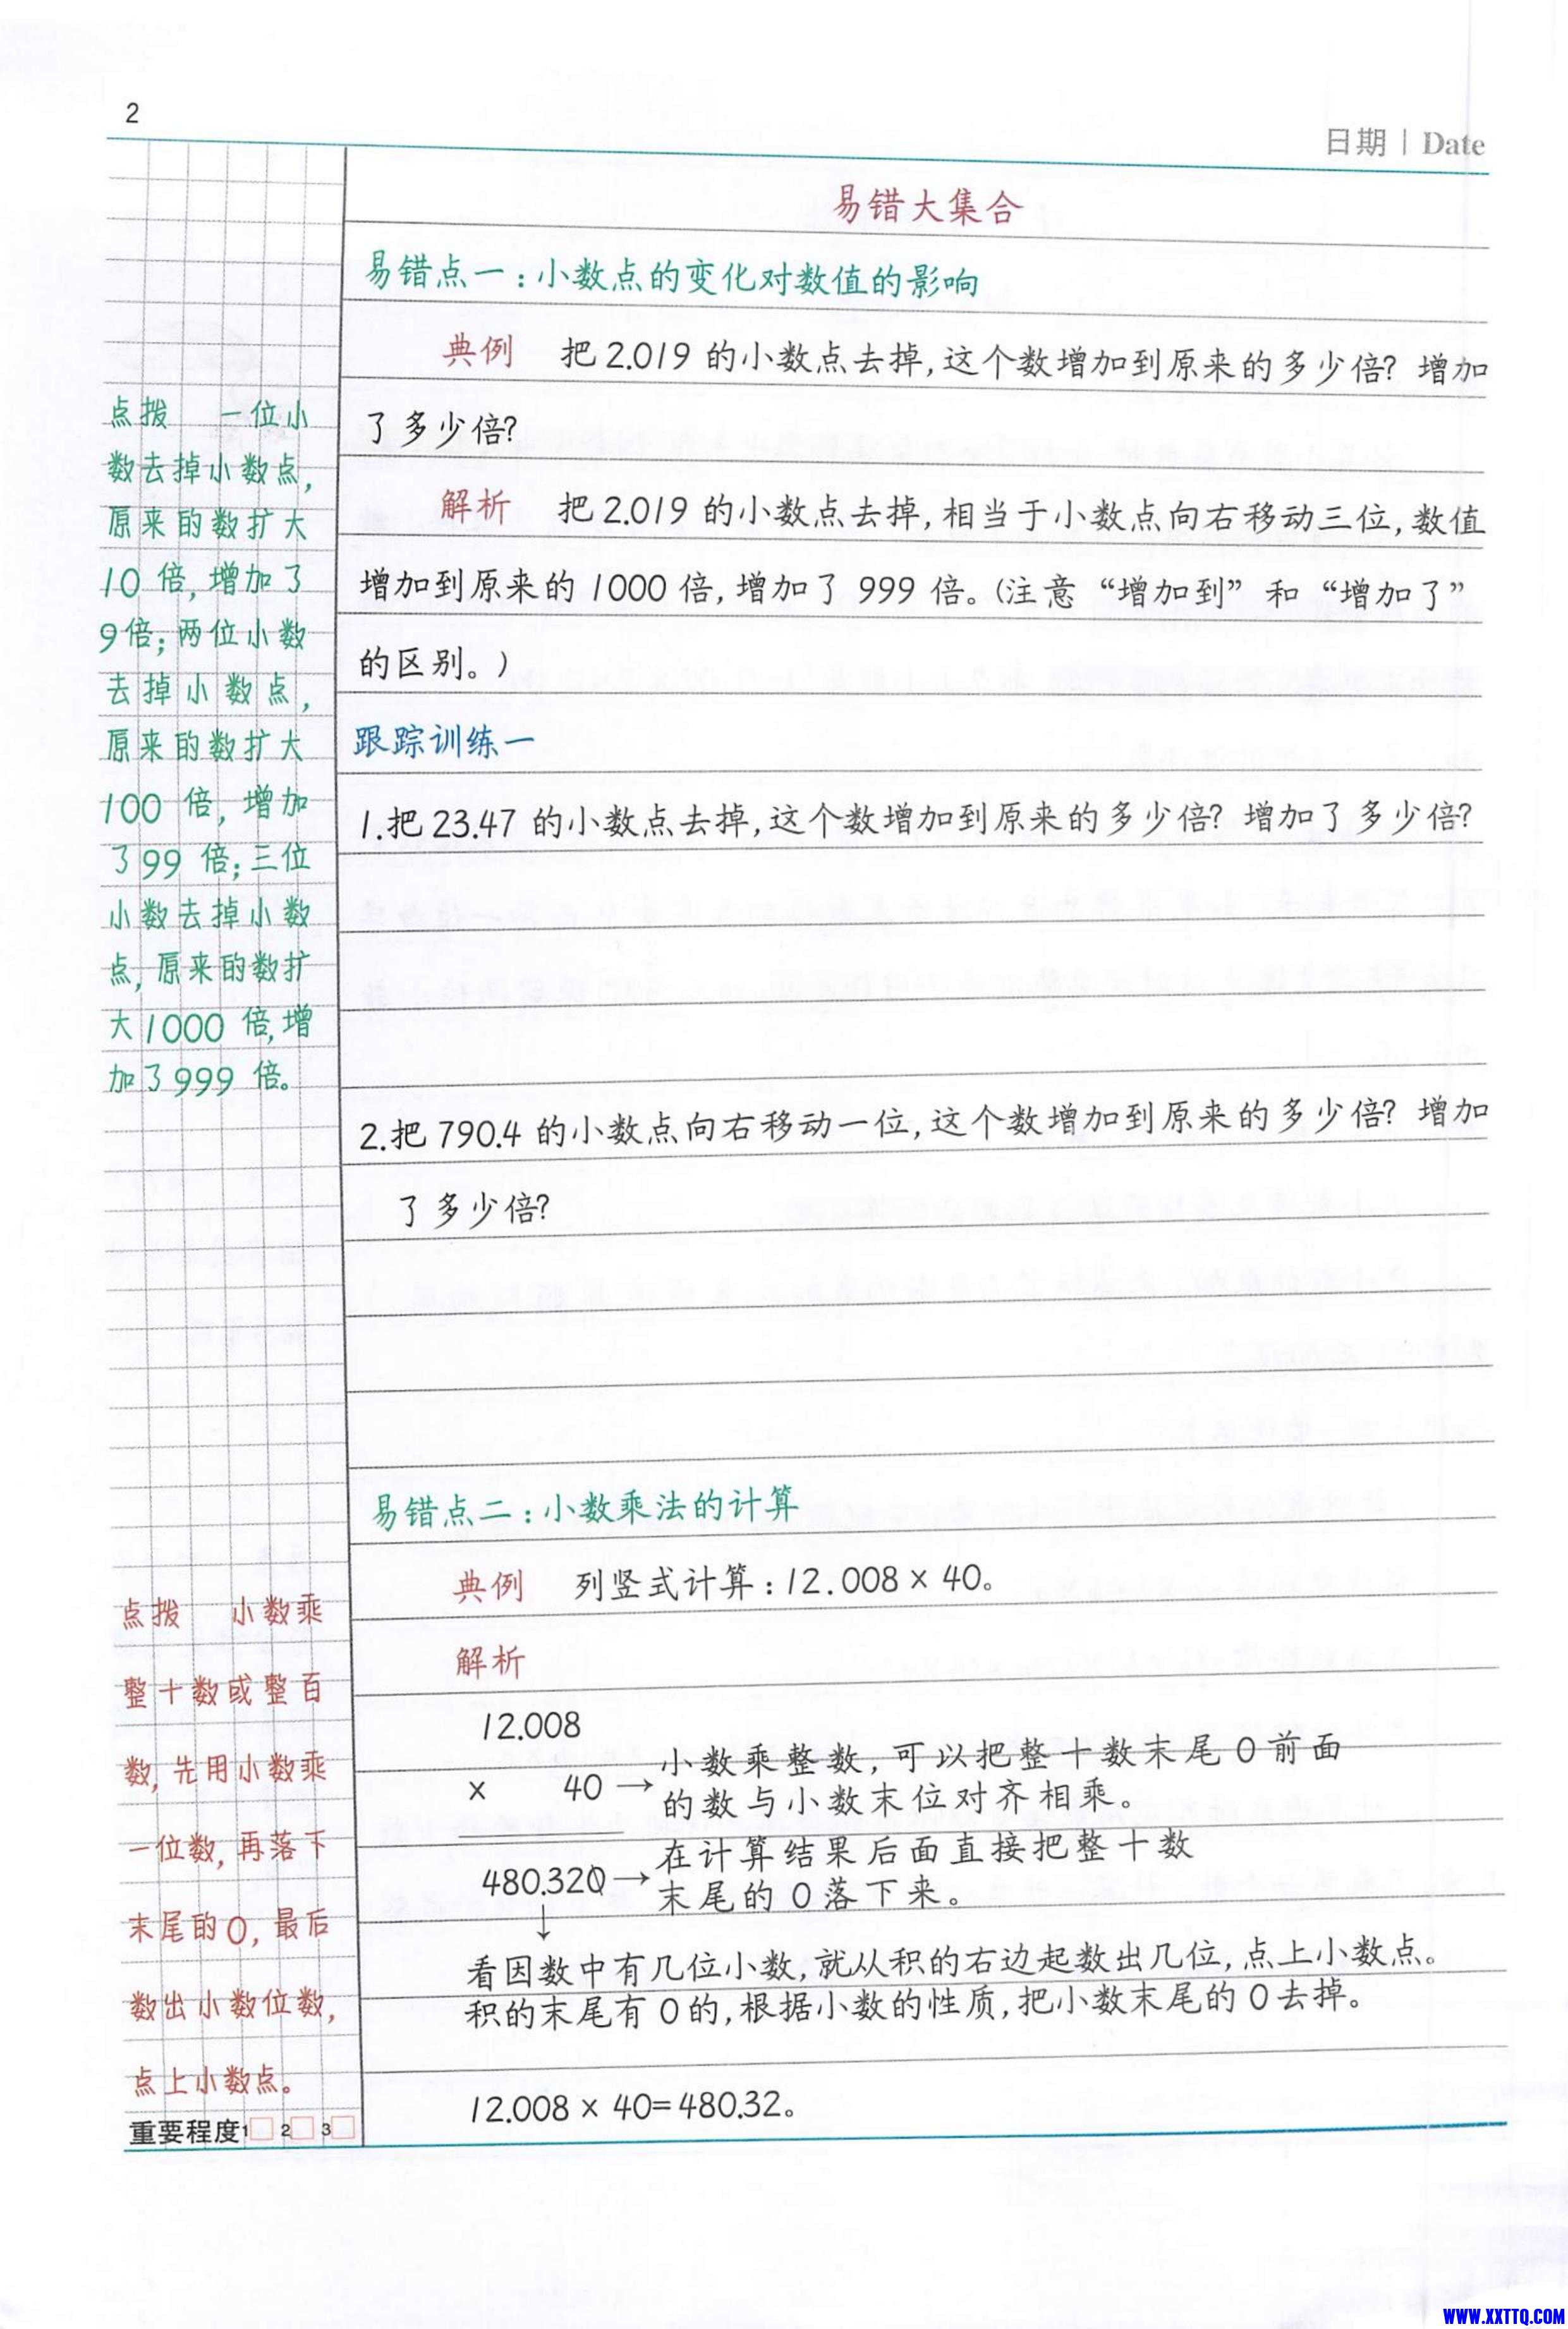 2
日期 | Date
易错大集合
易错点一：小数点的变化对数值的影响
典例 把2.019的小数点去掉，这个数增加到原来的多少倍？增加
了多少倍？
解析 把2.019的小数点去掉，相当于小数点向右移动三位，数值
增加到原来的1000倍，增加了999倍。（注意“增加到”和“增加了”
的区别。）
点拨 一位小
数去掉小数点，
原来的数扩大
10倍，增加了
9倍；两位小数
去掉小数点，
原来的数扩大
100倍，增加
了99倍；三位
小数去掉小数
点，原来的数扩
大1000倍，增
加了999倍。
跟踪训练一
1.把23.47的小数点去掉，这个数增加到原来的多少倍？增加了多少倍？
2.把790.4的小数点向右移动一位，这个数增加到原来的多少倍？增加
了多少倍？
易错点二：小数乘法的计算
典例 列竖式计算：12.008×40。
解析
12.008
× 40→小数乘整数，可以把整十数末尾0前面
的数与小数末位对齐相乘。
480.320→在计算结果后面直接把整十数
末尾的0落下来。
↓
看因数中有几位小数，就从积的右边起数出几位，点上小数点。
积的末尾有0的，根据小数的性质，把小数末尾的0去掉。
12.008×40=480.32。
点拨 小数乘
整十数或整百
数，先用小数乘
一位数，再落下
末尾的0，最后
数出小数位数，
点上小数点。
重要程度1□ 2□ 3□
WWW.XXTTQ.COM